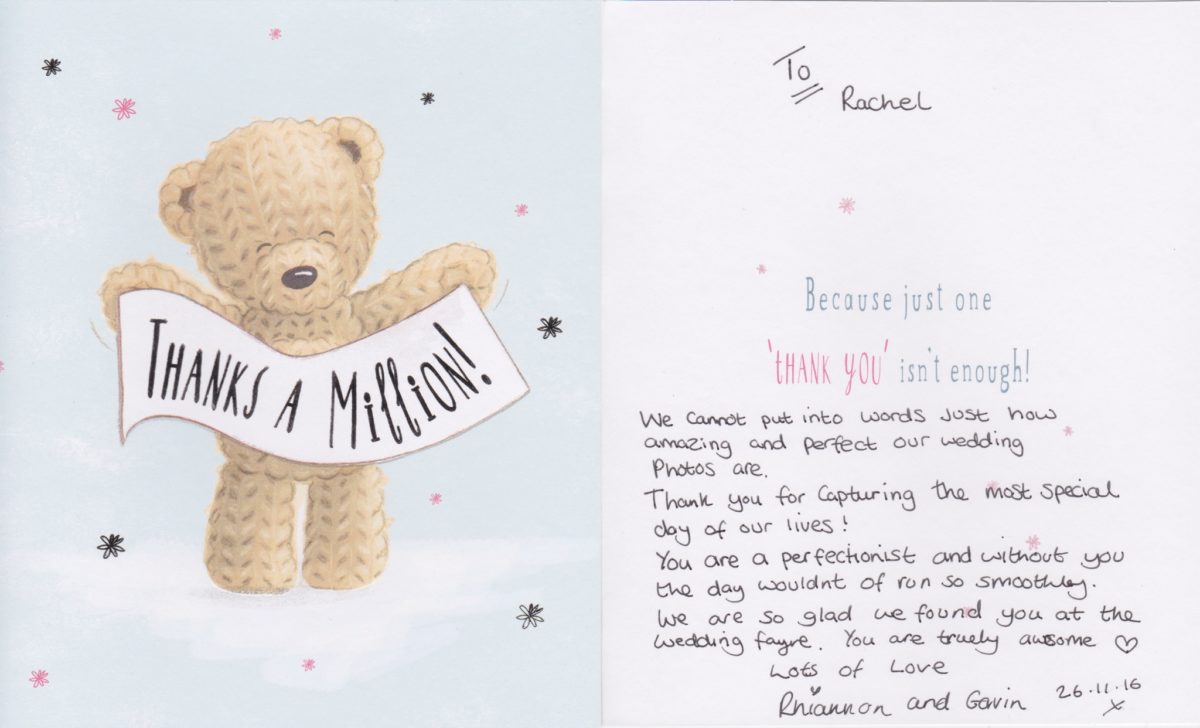 THANKS A MILLION!
To
Rachel
Because just one
'THANK YOU' isn't enough!
We cannot put into words just how
amazing and perfect our wedding
Photos are.
Thank you for capturing the most special
day of our lives!
You are a perfectionist and without you
the day wouldnt of run so smoothley.
We are so glad we found you at the
wedding fayre. You are truely awsome ♡
Lots of Love
Rhiannon and Gavin 26.11.16
x